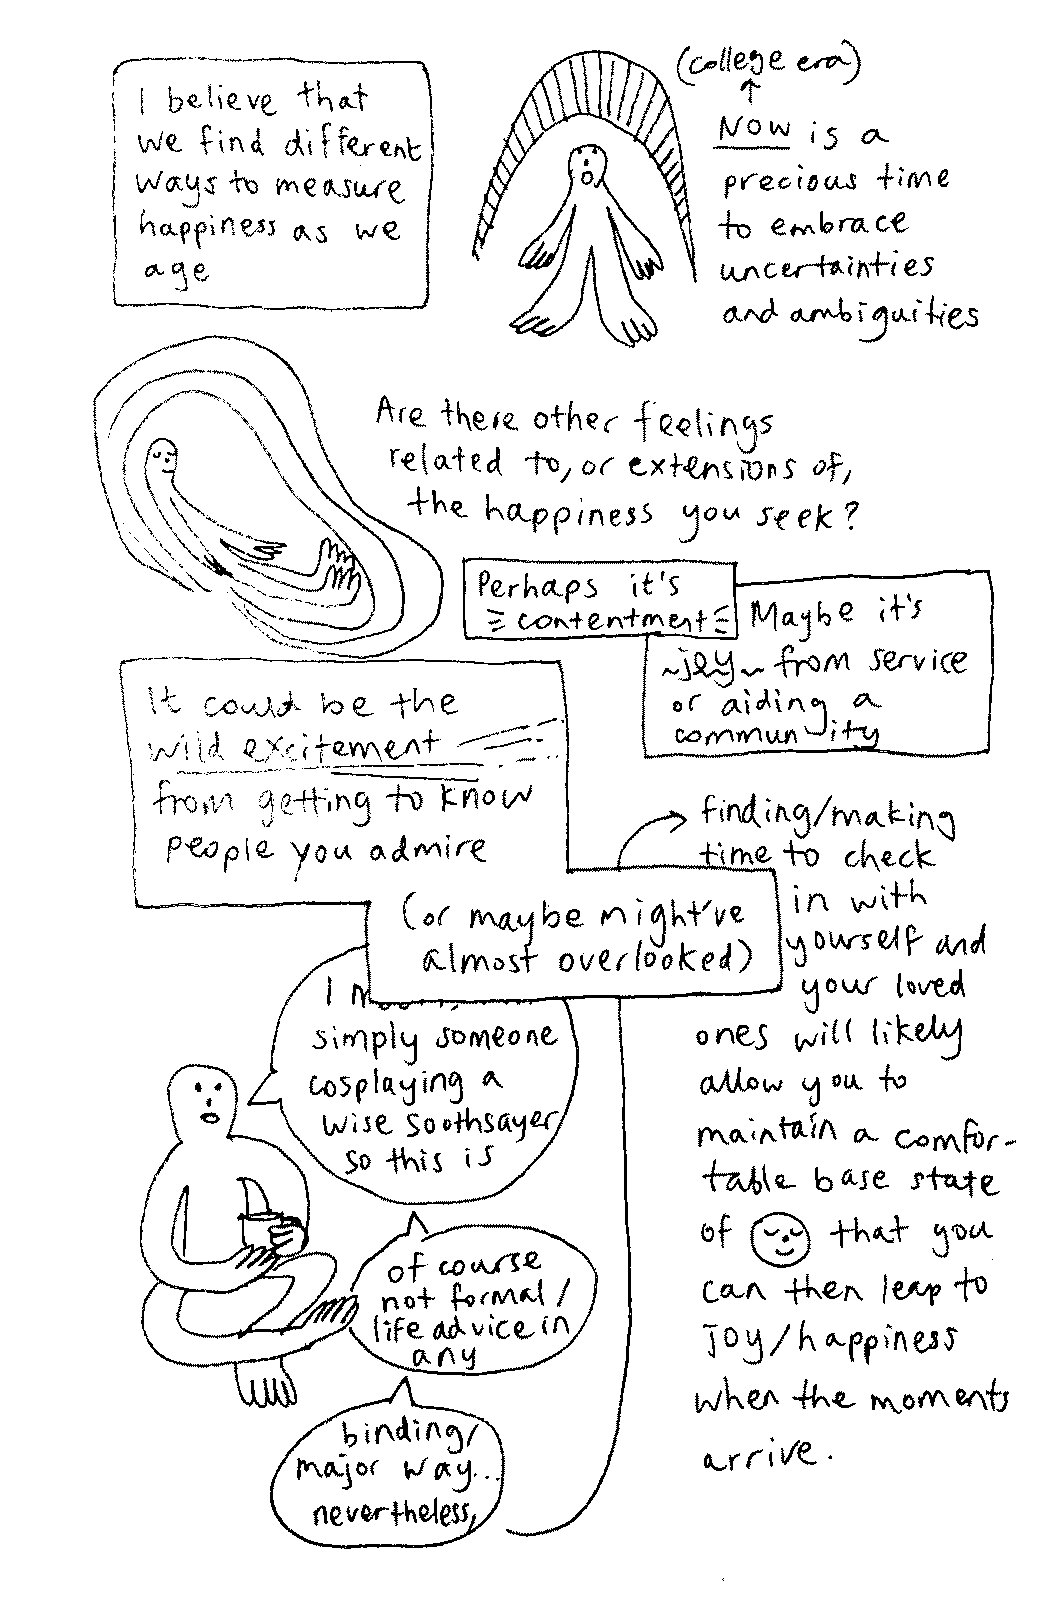 I believe that
we find different
ways to measure
happiness as we
age
(college era)
NOW is a
precious time
to embrace
uncertainties
and ambiguities
Are there other feelings
related to, or extensions of,
the happiness you seek?
Perhaps it's
contentment
Maybe it's
~joy~ from service
or aiding a
community
It could be the
wild excitement
from getting to know
people you admire
(or maybe might've
almost overlooked)
I
simply someone
cosplaying a
wise soothsayer
so this is
of course
not formal/
life advice in
any
binding/
major way...
nevertheless,
finding/making
time to check
in with
yourself and
your loved
ones will likely
allow you to
maintain a comfor-
table base state
of that you
can then leap to
joy/happiness
when the moments
arrive.